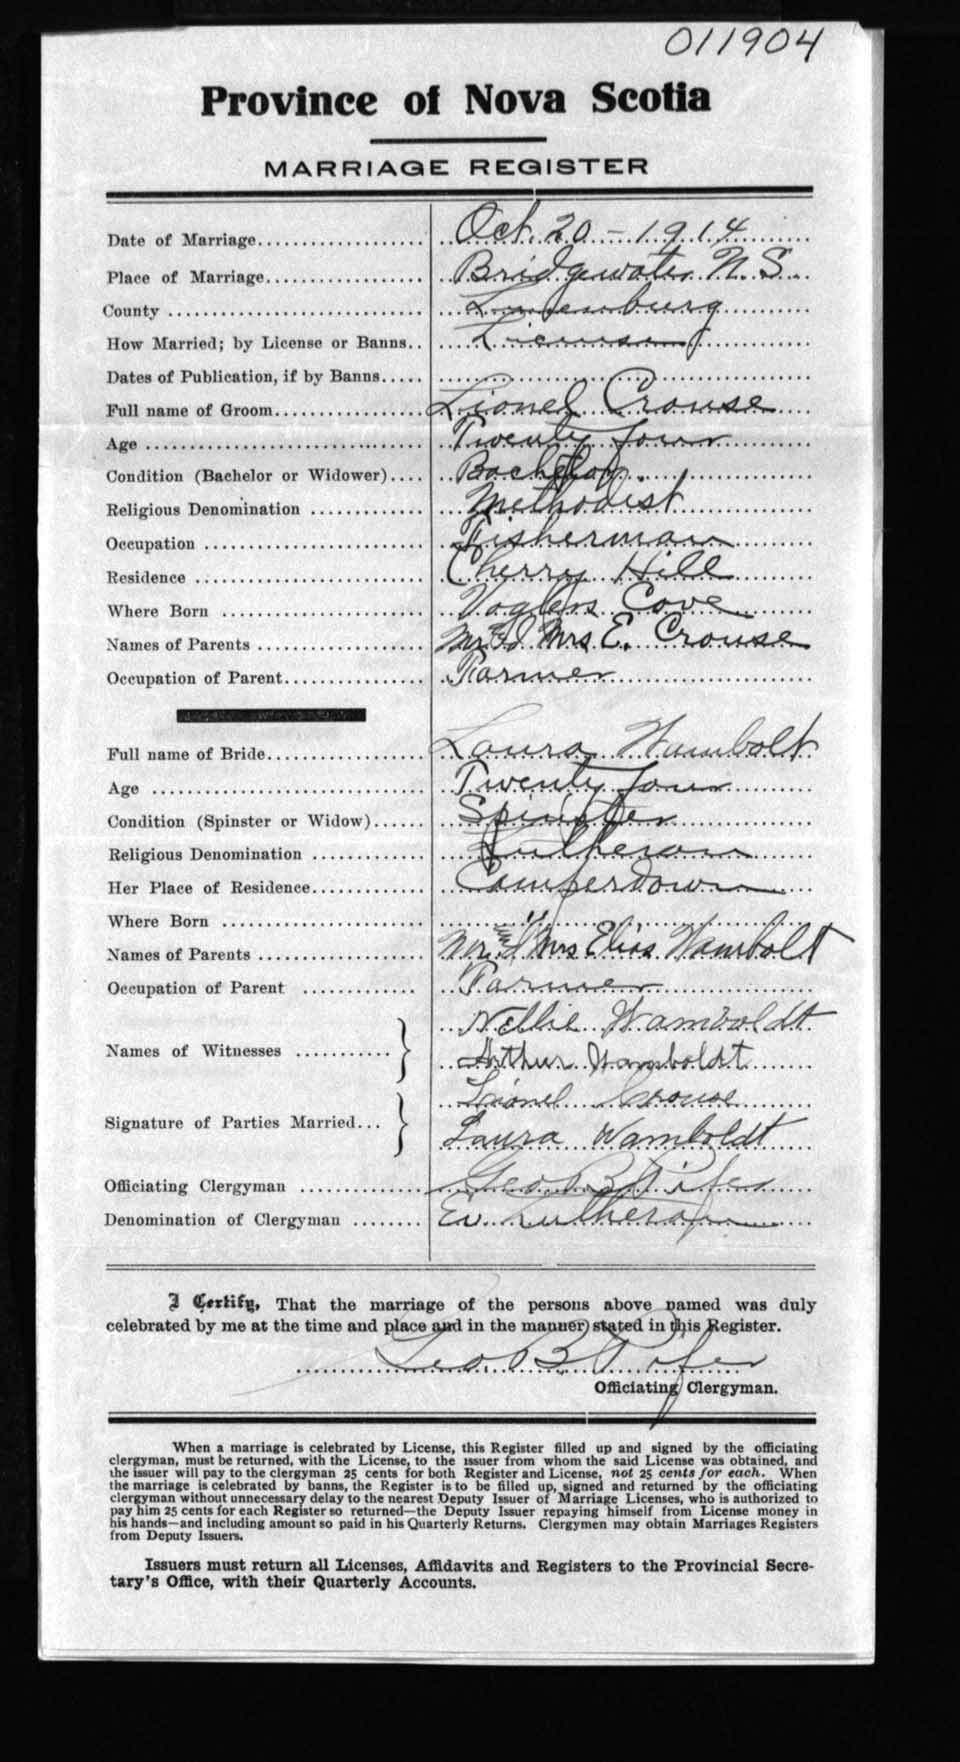 011904
Province of Nova Scotia
MARRIAGE REGISTER
Date of Marriage.................... Oct. 20 - 1914
Place of Marriage.................. Bridgewater N. S.
County ............................. Lunenburg
How Married; by License or Banns.. License
Dates of Publication, if by Banns.....
Full name of Groom................. Lionel Crouse
Age ................................ Twenty four
Condition (Bachelor or Widower).... Bachelor
Religious Denomination ............. Methodist
Occupation ......................... Fisherman
Residence .......................... Cherry Hill
Where Born ....................... Voglers Cove
Names of Parents ................... Mr & Mrs E. Crouse
Occupation of Parent................ Farmer
Full name of Bride.................. Laura Wambolt
Age ............................... Twenty four
Condition (Spinster or Widow)...... Spinster
Religious Denomination ............. Lutheran
Her Place of Residence............. Camperdown
Where Born ....................... "
Names of Parents ................... Mr & Mrs Elias Wambolt
Occupation of Parent ............. Farmer
Nellie Wamboldt
Names of Witnesses ...........
Arthur Wamboldt
Lionel Crouse
Signature of Parties Married...
Laura Wamboldt
Officiating Clergyman .............. Geo B Pifer
Denomination of Clergyman ........ Ev. Lutheran
I Certify, That the marriage of the persons above named was duly
celebrated by me at the time and place and in the manner stated in this Register.
Geo. B Pifer
Officiating Clergyman.
When a marriage is celebrated by License, this Register filled up and signed by the officiating
clergyman, must be returned, with the License, to the issuer from whom the said License was obtained, and
the issuer will pay to the clergyman 25 cents for both Register and License, not 25 cents for each. When
the marriage is celebrated by banns, the Register is to be filled up, signed and returned by the officiating
clergyman without unnecessary delay to the nearest Deputy Issuer of Marriage Licenses, who is authorized to
pay him 25 cents for each Register so returned—the Deputy Issuer repaying himself from License money in
his hands—and including amount so paid in his Quarterly Returns. Clergymen may obtain Marriages Registers
from Deputy Issuers.
Issuers must return all Licenses, Affidavits and Registers to the Provincial Secre-
tary's Office, with their Quarterly Accounts.